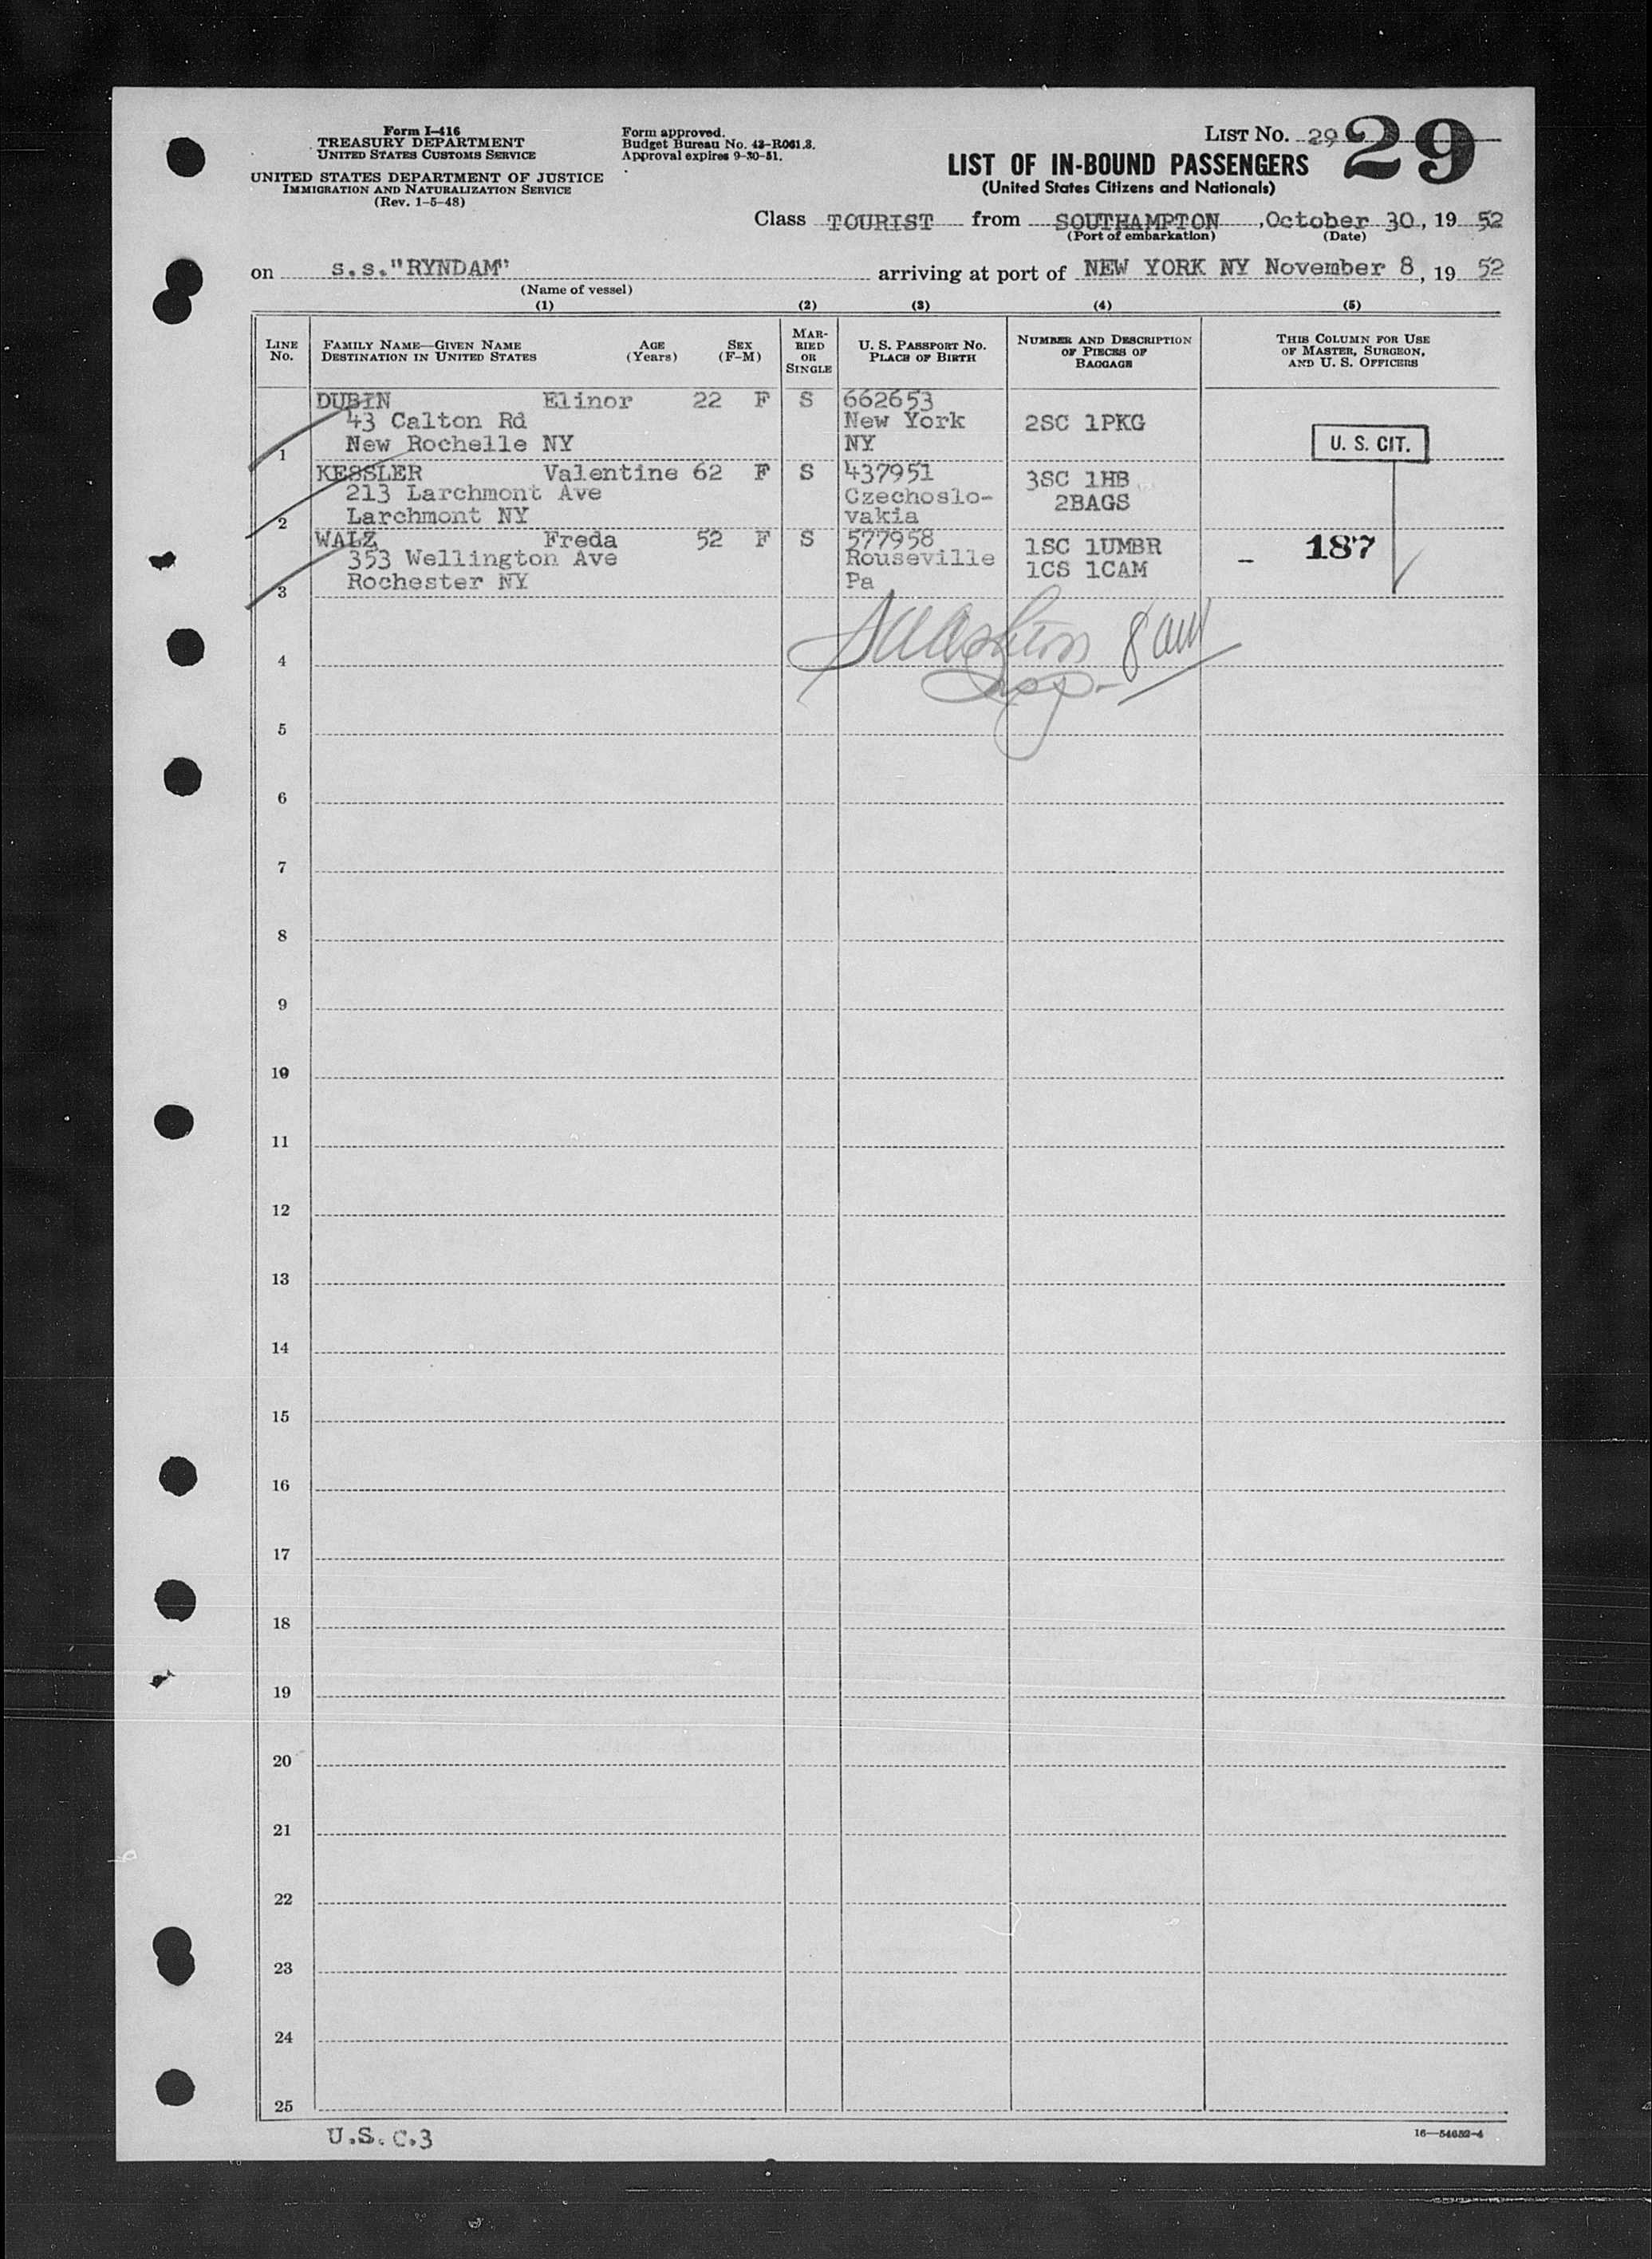 Form I-416
TREASURY DEPARTMENT
UNITED STATES CUSTOMS SERVICE
UNITED STATES DEPARTMENT OF JUSTICE
IMMIGRATION AND NATURALIZATION SERVICE
(Rev. 1-5-48)
Form approved.
Budget Bureau No. 43-R061.3.
Approval expires 9-30-51.
LIST No. 29 29
LIST OF IN-BOUND PASSENGERS
(United States Citizens and Nationals)
Class TOURIST from SOUTHAMPTON, October 30, 19 52
(Port of embarkation) (Date)
on s.s."RYNDAM" arriving at port of NEW YORK NY November 8, 19 52
(Name of vessel)
(1) (2) (3) (4) (5)
LINE No.
FAMILY NAME—GIVEN NAME
DESTINATION IN UNITED STATES
AGE (Years)
SEX (F-M)
MARRIED OR SINGLE
U. S. PASSPORT No.
PLACE OF BIRTH
NUMBER AND DESCRIPTION OF PIECES OF BAGGAGE
THIS COLUMN FOR USE OF MASTER, SURGEON, AND U. S. OFFICERS
DUBIN Elinor 22 F S 662653
43 Calton Rd New York 2SC 1PKG
1 New Rochelle NY NY U. S. CIT.
KESSLER Valentine 62 F S 437951 3SC 1HB
213 Larchmont Ave Czechoslo- 2BAGS
2 Larchmont NY vakia
WALZ Freda 52 F S 577958 1SC 1UMBR - 187
353 Wellington Ave Rouseville 1CS 1CAM
3 Rochester NY Pa
4
Insp.
5
6
7
8
9
10
11
12
13
14
15
16
17
18
19
20
21
22
23
24
25
U.S. C.3
16—54652-4